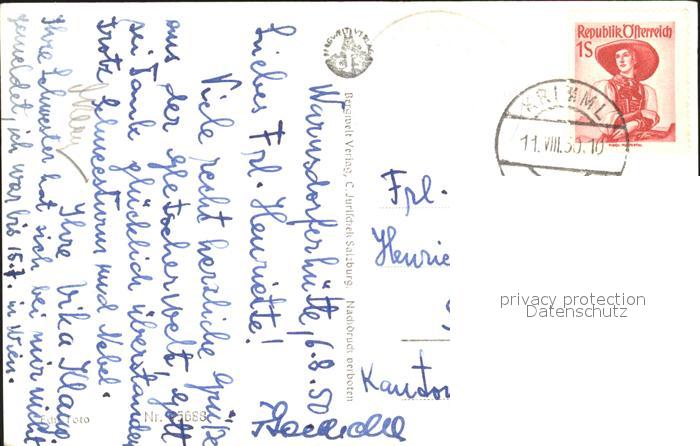 Warnsdorferhütte, 6.8.50
Liebes Frl. Henriette!
Viele recht herzliche Grüße
aus der Gletscherwelt, gott
sei Dank glücklich überstanden
trotz Schneesturm und Nebel.
Ihre Vika
Ihre Schwester hat sich bei mir nicht
gemeldet, ich war bis 15.7. in Wien.
Echt Foto
Nr.
Bergwelt Verlag, C. Jurischek Salzburg. Nachdruck verboten
BERGWELT VERLAG
Republik Österreich
1S
KRIMML
11.VIII.50.10
Frl.
Henrie
Kantor
privacy protection
Datenschutz